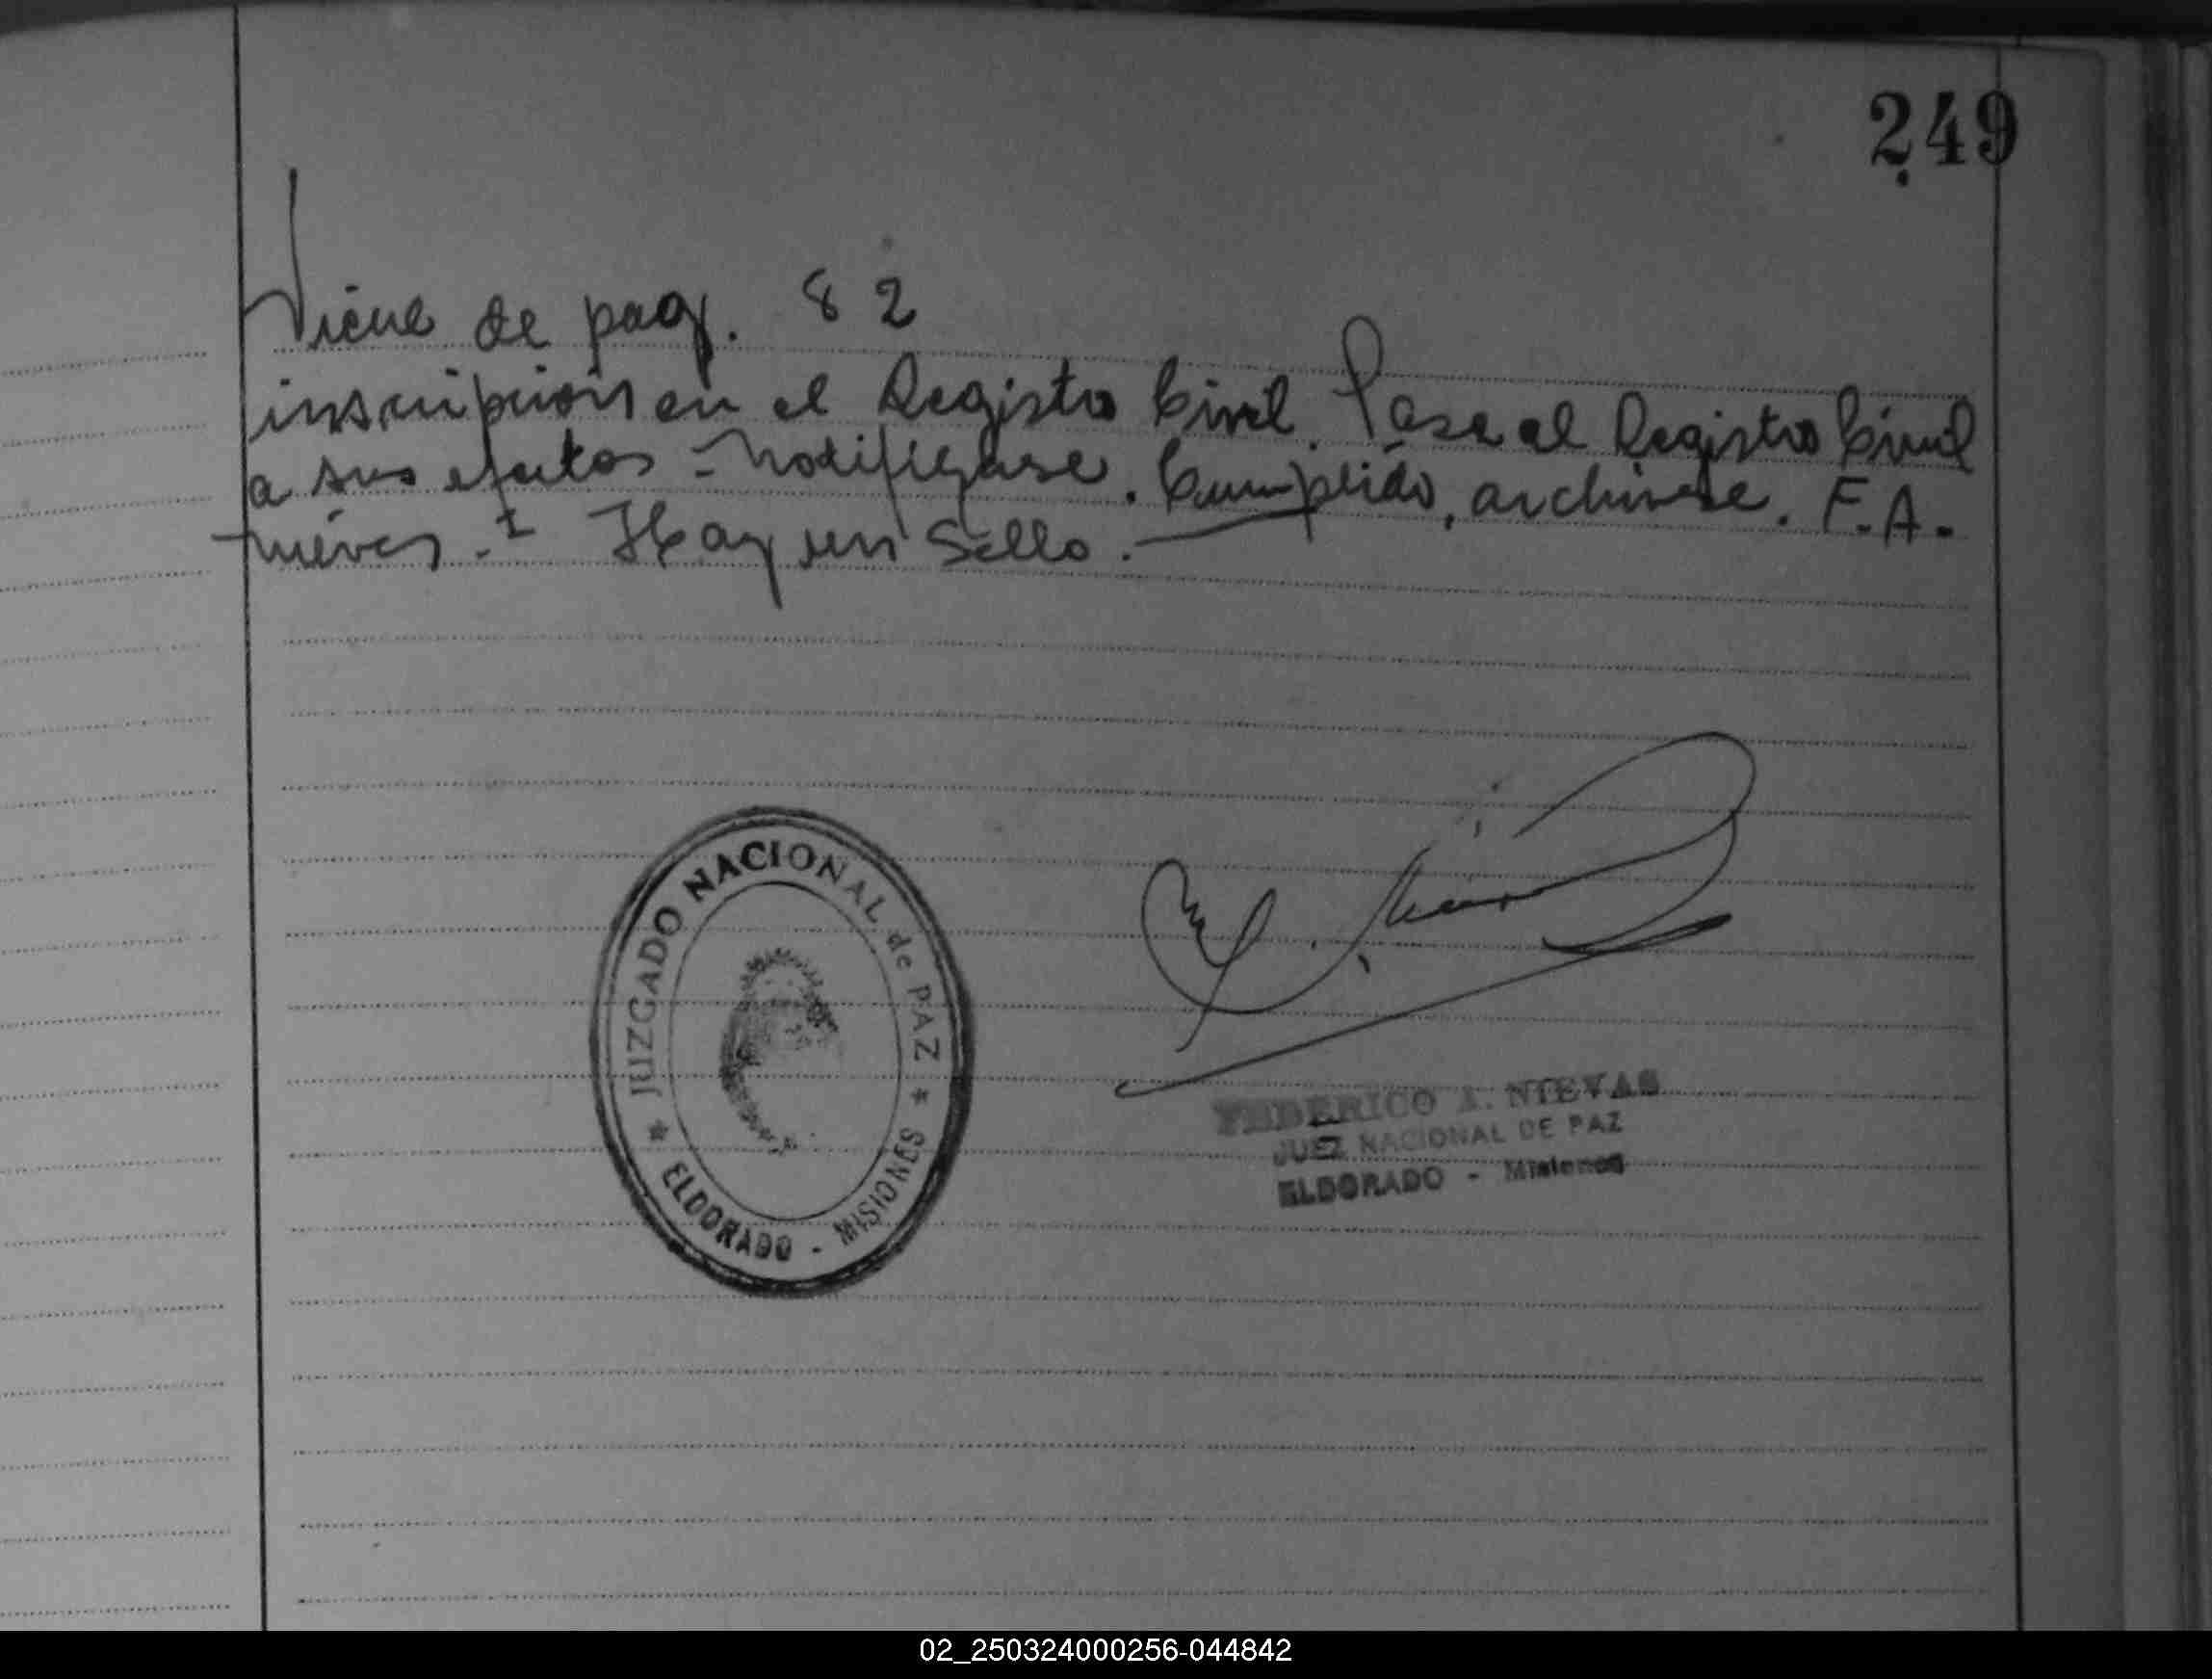 249
Viene de pag. 82
inscripción en el Registro Civil. Pase al Registro Civil
a sus efectos - Notifíquese. Cumplido, archívese. F. A.
Nievas. - Hay un Sello. -
JUZGADO NACIONAL de PAZ
ELDORADO - MISIONES
FEDERICO A. NIEVAS
JUEZ NACIONAL DE PAZ
ELDORADO - Misiones
02_250324000256-044842